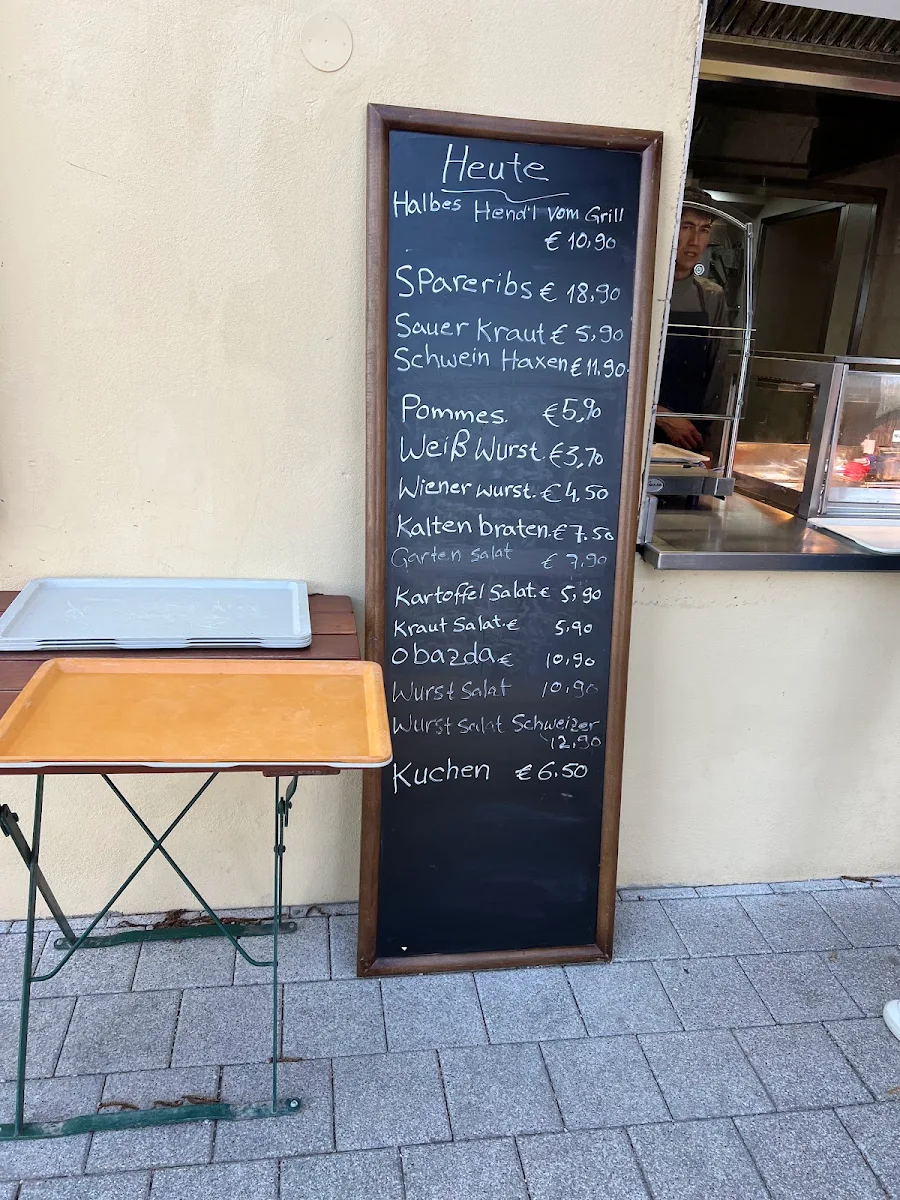 Heute
Halbes Hend'l vom Grill
€ 10,90
SPareribs € 18,90
Sauer Kraut € 5,90
Schwein Haxen € 11.90.
Pommes. €5,90
Weiß Wurst. €3,70
Wiener wurst. € 4,50
Kalten braten. € 7.50
Garten salat € 7,90
Kartoffel Salat. € 5,90
Kraut Salat. € 5,90
Obazda € 10,90
Wurst Salat 10,90
Wurst salat Schweizer
12,90
Kuchen € 6.50